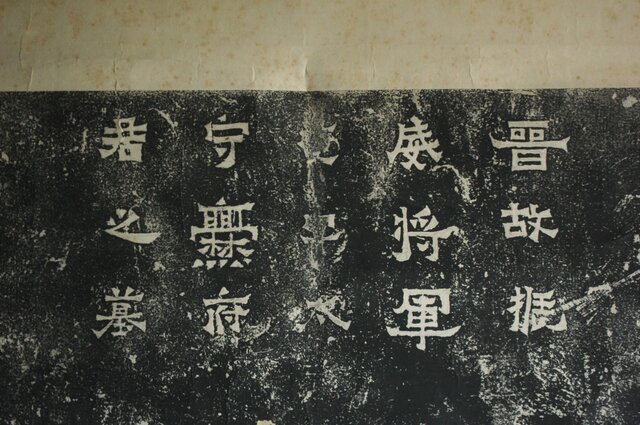 晉故振
威將軍
太
守爨府
君之墓